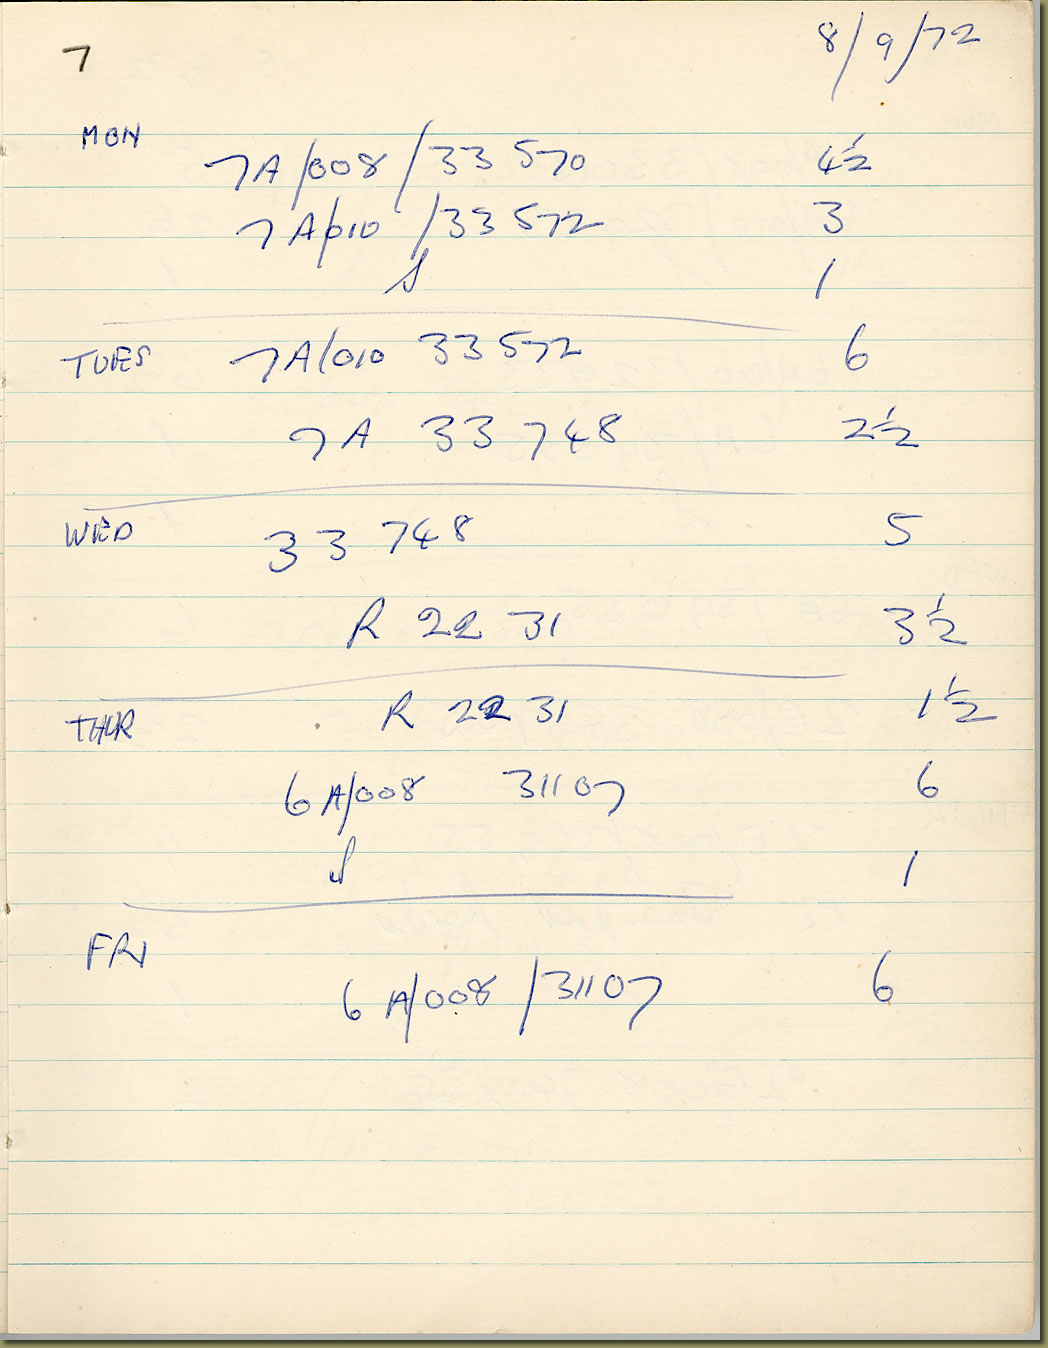 7 8/9/72
MON
7A/008/33570 4½
7A/010/33572 3
S 1
TUES 7A/010 33572 6
7A 33748 2½
WED 33 748 5
R 22 31 3½
THUR R 22 31 1½
6A/008 31107 6
S 1
FRI
6A/008/31107 6